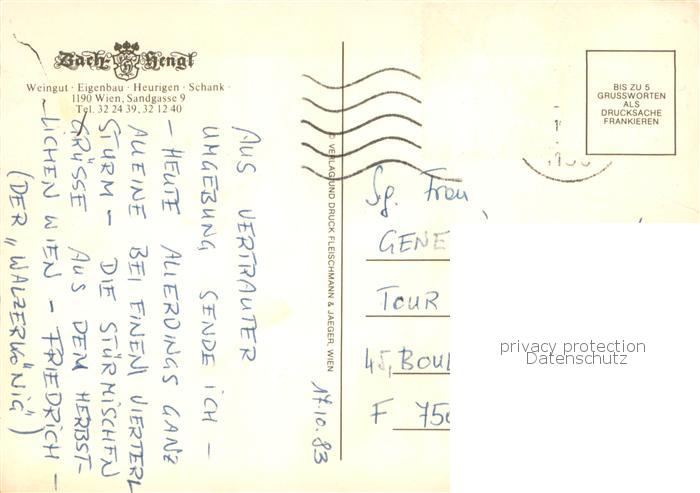 Bach-Hengl
Weingut · Eigenbau · Heurigen · Schank ·
1190 Wien, Sandgasse 9
Tel. 32 24 39, 32 12 40
AUS VERTRAUTER
UMGEBUNG SENDE ICH -
- HEUTE ALLERDINGS GANZ
ALLEINE BEI EINEM VIERTERL
STURM - DIE STÜRMISCHEN
GRÜSSE AUS DEM HERBST-
-LICHEN WIEN - FRIEDRICH -
(DER „WALZERKÖNIG")
17.10.83
© VERLAG UND DRUCK FLEISCHMANN & JAEGER, WIEN
BIS ZU 5
GRUSSWORTEN
ALS
DRUCKSACHE
FRANKIEREN
Sg. Frau
GENE
TOUR
45, BOUL
F 750
privacy protection
Datenschutz